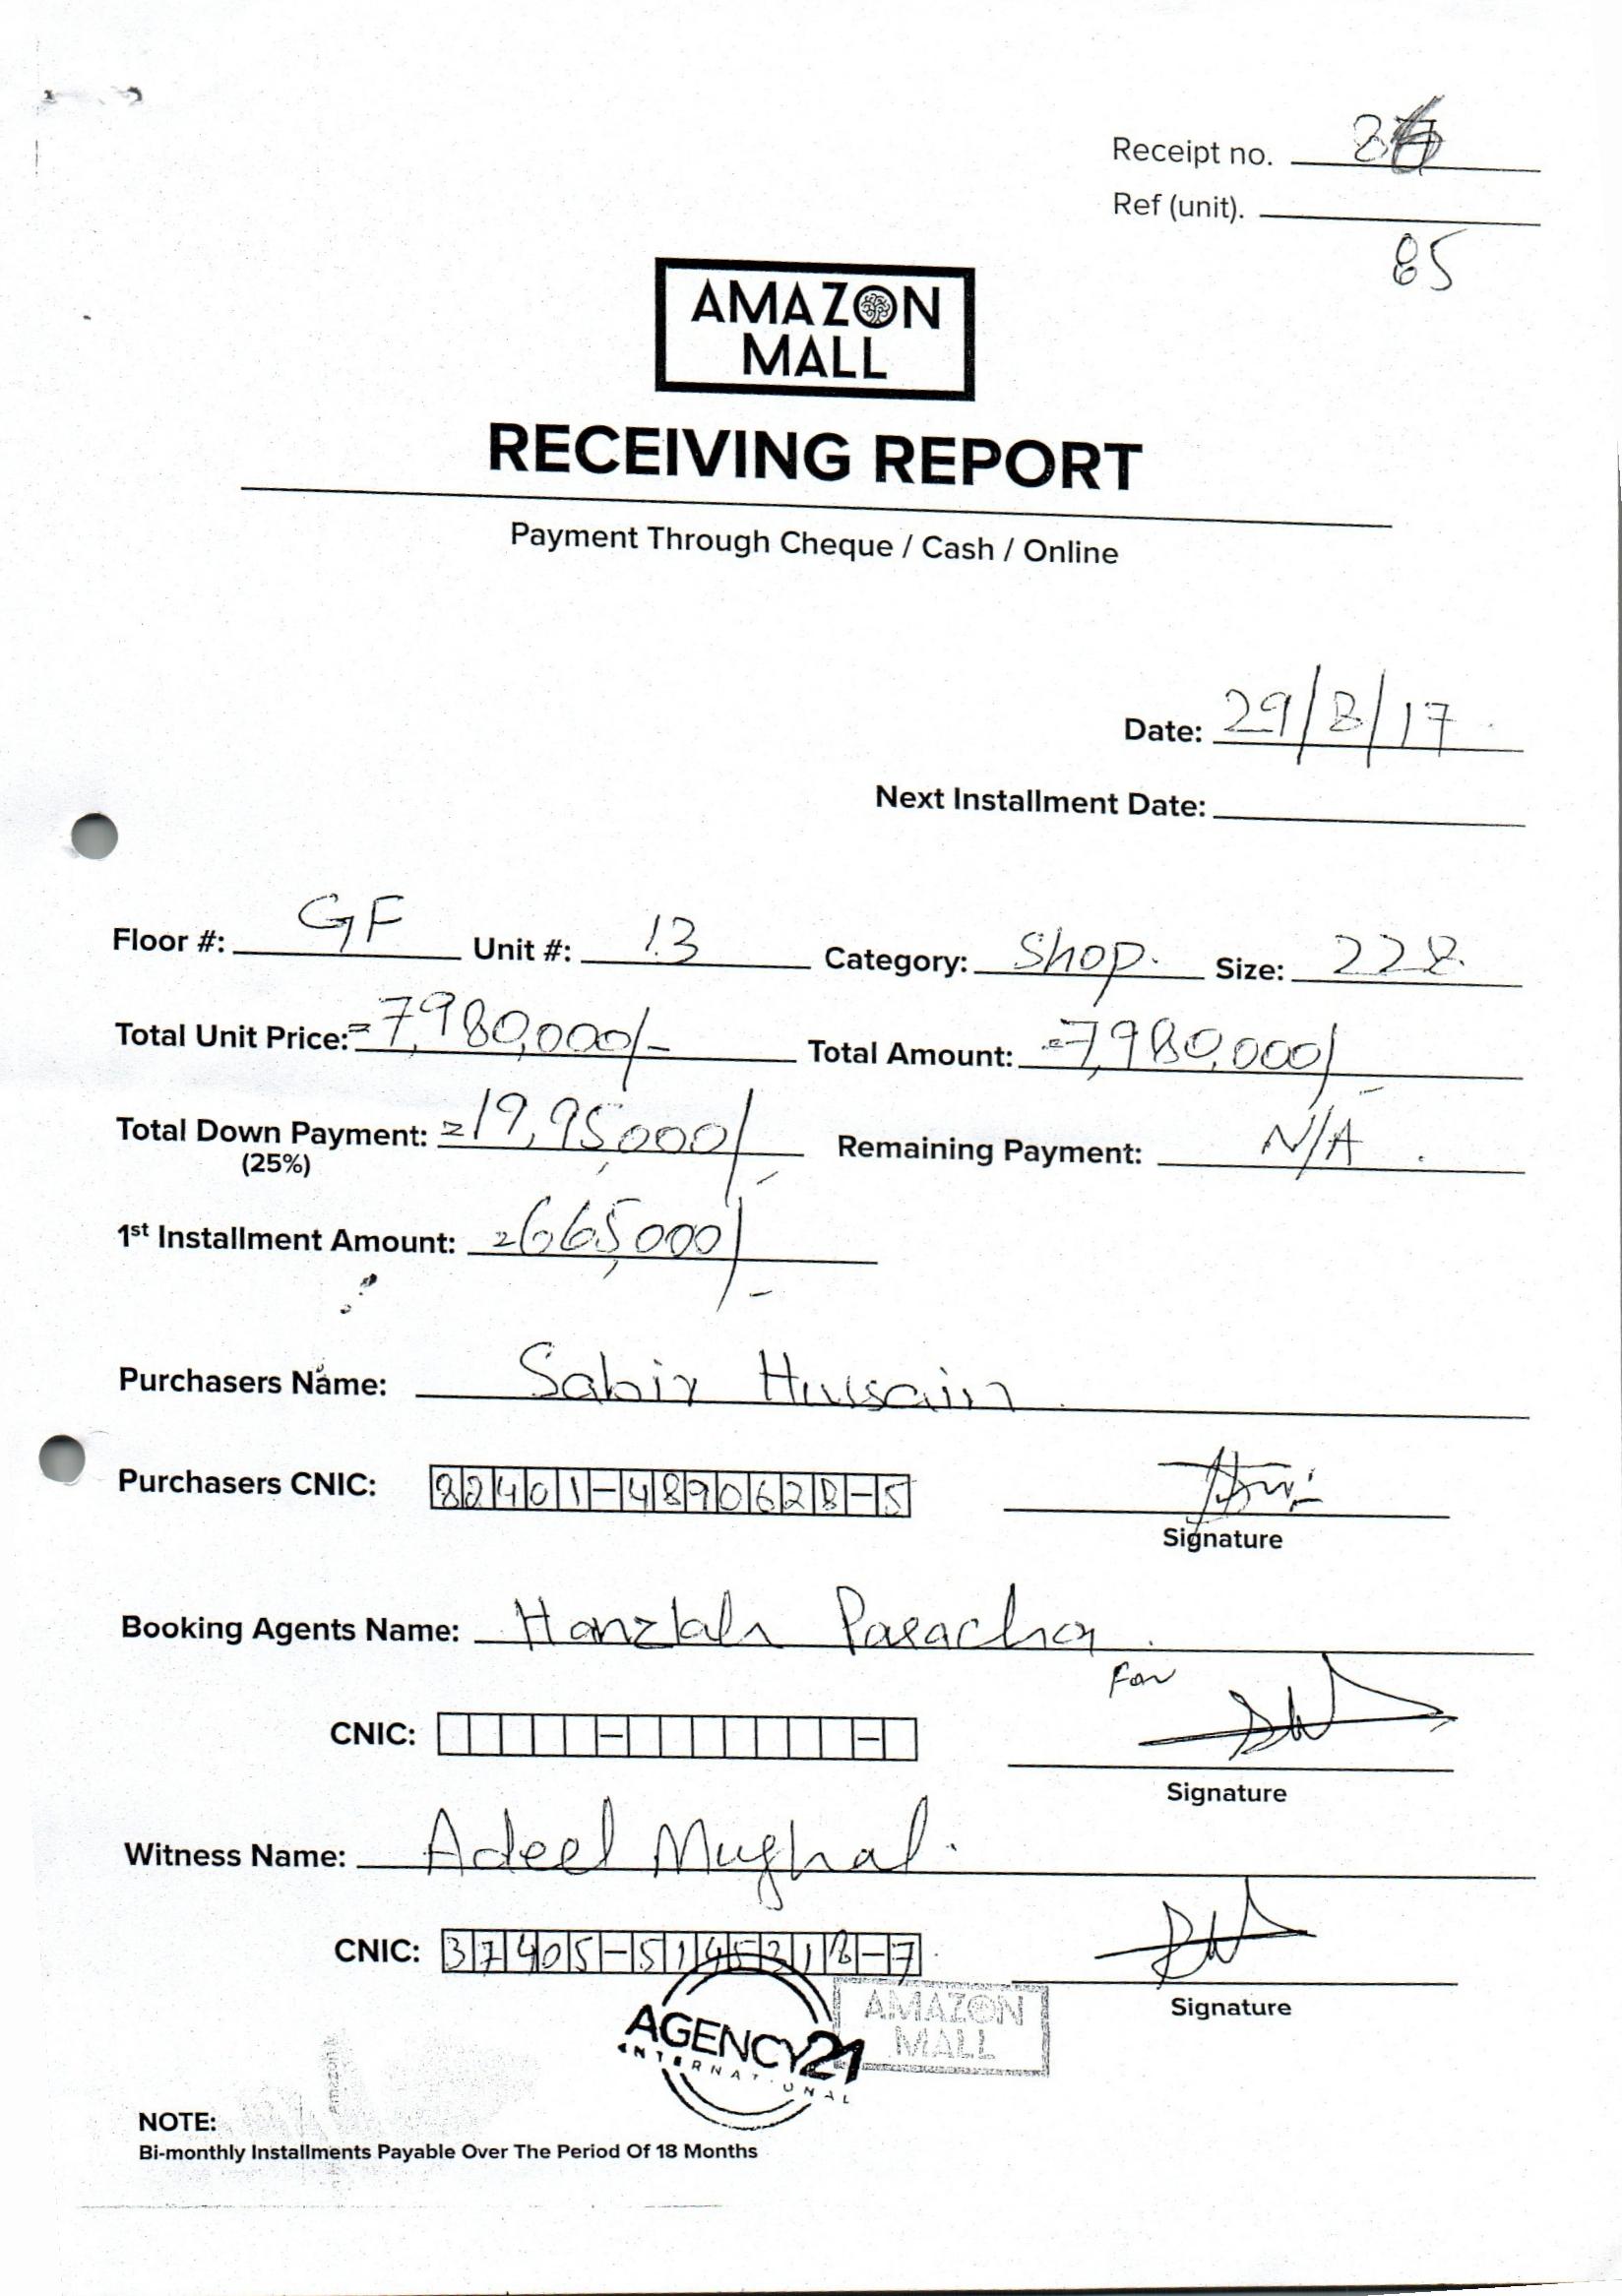 Receipt no. 8
Ref (unit).
85
AMAZON
MALL
RECEIVING REPORT
Payment Through Cheque / Cash / Online
Date: 29/8/17
Next Installment Date:
Floor #: GF Unit #: 13 Category: Shop. Size: 228
Total Unit Price: =7,980,000/- Total Amount: =7,980,000/-
Total Down Payment: =19,95,000/- Remaining Payment: N/A
(25%)
1st Installment Amount: =665,000/-
Purchasers Name: Sabir Hussain
Purchasers CNIC: 82401-4890628-5
Signature
Booking Agents Name: Hanzlah Paracha
For
CNIC: - -
Signature
Witness Name: Adeel Mughal
CNIC: 37405-5145318-7
Signature
AGENCY21
INTERNATIONAL
AMAZON
MALL
NOTE:
Bi-monthly Installments Payable Over The Period Of 18 Months